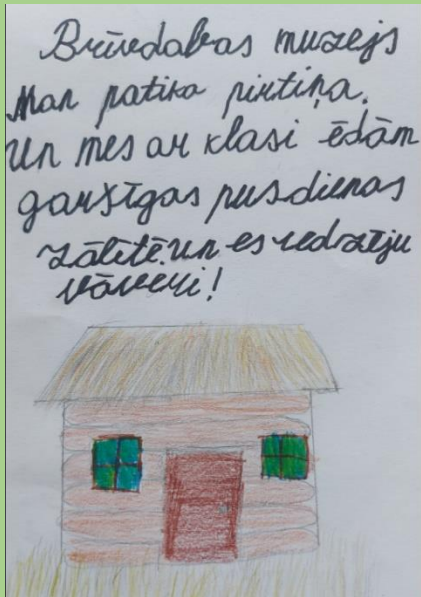 Brīvdabas muzejs
Man patika pirtiņa.
Un mes ar klasi ēdām
garšīgas pusdienas
zālītē. un es redzēju
vāveri!